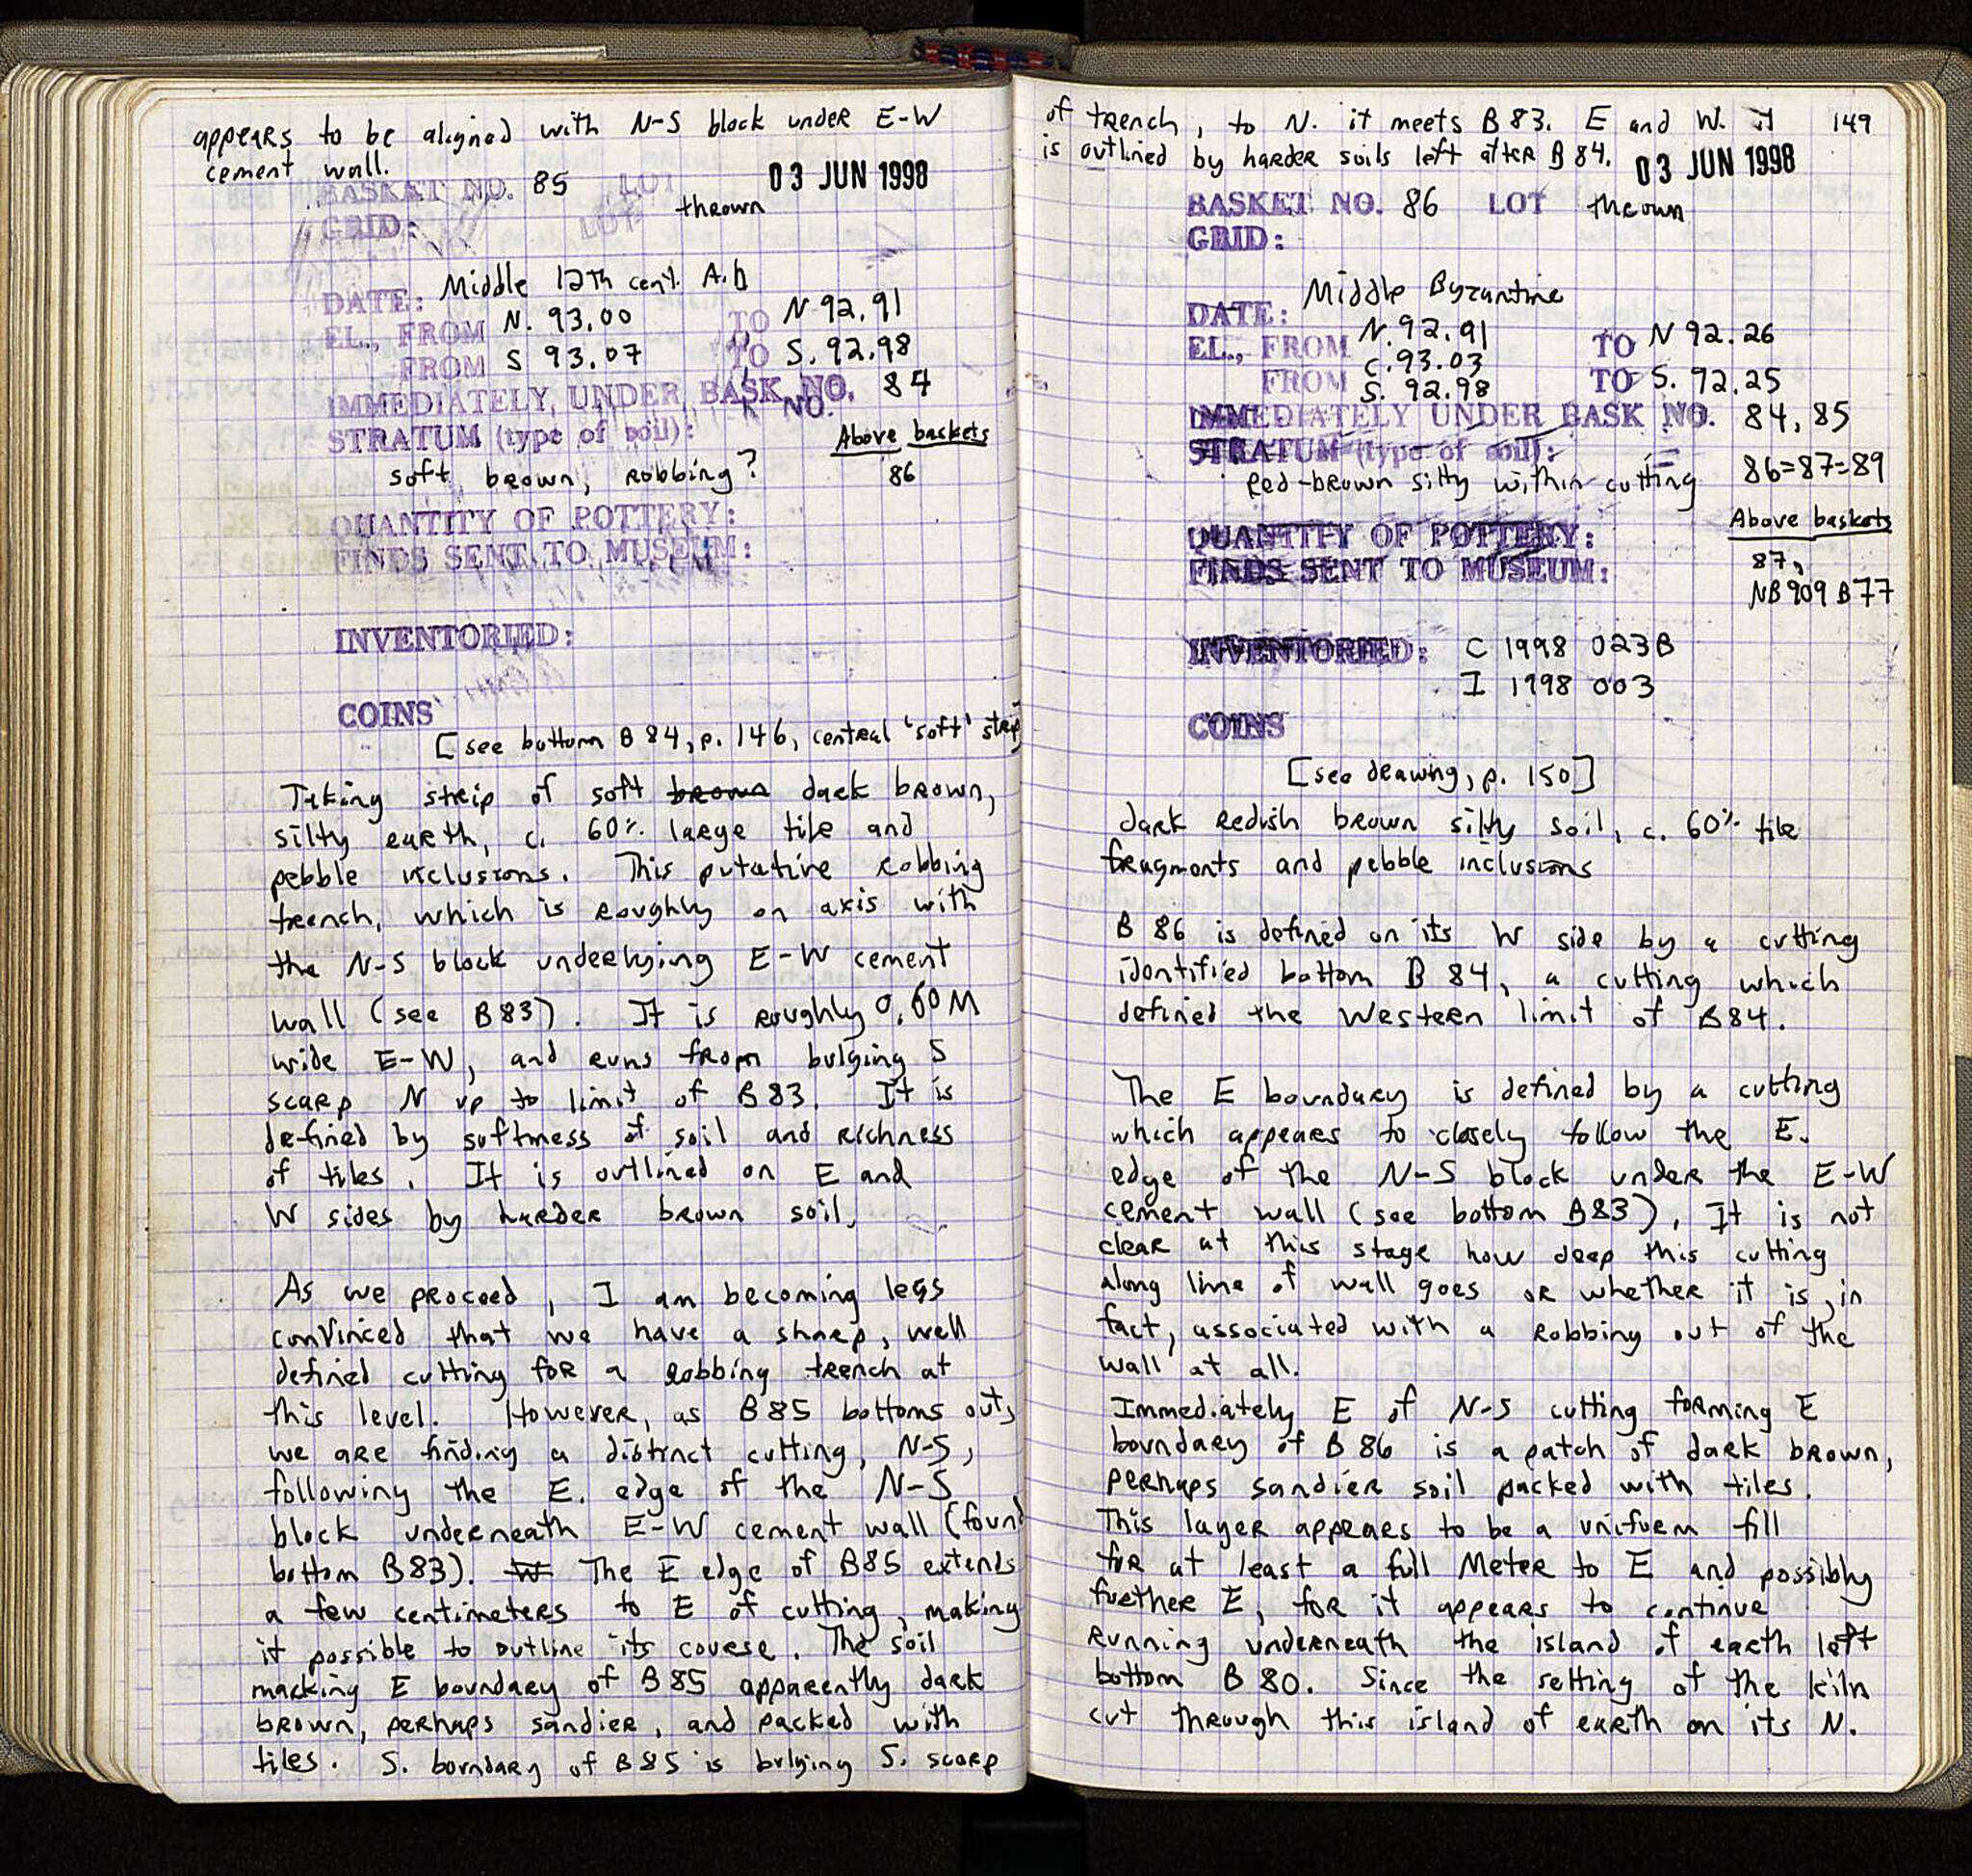 appears to be aligned with N-S block under E-W
cement wall.
03 JUN 1998
BASKET NO. 85 LOT
thrown
GRID: LOT
DATE: Middle 12th cent. A.D
EL., FROM N. 93.00 TO N 92.91
FROM S 93.07 TO S. 92.98
IMMEDIATELY UNDER BASK NO. 84
NO.
STRATUM (type of soil):
Above baskets
soft, brown, robbing?
86
QUANTITY OF POTTERY:
FINDS SENT TO MUSEUM:
INVENTORIED:
COINS
[see bottom B 84, p. 146, central 'soft' strip
Taking strip of soft brown dark brown,
silty earth, c. 60% large tile and
pebble inclusions. This putative robbing
trench, which is roughly on axis with
the N-S block underlying E-W cement
wall (see B83). It is roughly 0.60M
wide E-W, and runs from bulging S
scarp N up to limit of B83. It is
defined by softness of soil and richness
of tiles. It is outlined on E and
W sides by harder brown soil.
As we proceed, I am becoming less
convinced that we have a sharp, well
defined cutting for a robbing trench at
this level. However, as B85 bottoms out,
we are finding a distinct cutting, N-S,
following the E. edge of the N-S
block underneath E-W cement wall (found
bottom B83). W The E edge of B85 extends
a few centimeters to E of cutting, making
it possible to outline its course. The soil
marking E boundary of B85 apparently dark
brown, perhaps sandier, and packed with
tiles. S. boundary of B85 is bulging S. scarp
of trench, to N. it meets B83. E and W. it
149
is outlined by harder soils left after B 84.
03 JUN 1998
BASKET NO. 86 LOT thrown
GRID:
DATE: Middle Byzantine
EL., FROM N. 92.91 TO N 92.26
C. 93.03
FROM S. 92.98 TO S. 92.25
IMMEDIATELY UNDER BASK NO. 84, 85
STRATUM (type of soil):
86=87=89
Red-brown silty within cutting
Above baskets
QUANTITY OF POTTERY:
87,
FINDS SENT TO MUSEUM:
NB 909 B77
INVENTORIED: C 1998 023B
I 1998 003
COINS
[see drawing, p. 150]
dark redish brown silty soil, c. 60% tile
fragments and pebble inclusions
B 86 is defined on its W side by a cutting
identified bottom B 84, a cutting which
defined the Western limit of B84.
The E boundary is defined by a cutting
which appears to closely follow the E.
edge of the N-S block under the E-W
cement wall (see bottom B83). It is not
clear at this stage how deep this cutting
along line of wall goes or whether it is, in
fact, associated with a robbing out of the
wall at all.
Immediately E of N-S cutting forming E
boundary of B 86 is a patch of dark brown,
perhaps sandier soil packed with tiles.
This layer appears to be a uniform fill
for at least a full Meter to E and possibly
further E, for it appears to continue
running underneath the island of earth left
bottom B 80. Since the setting of the kiln
cut through this island of earth on its N.